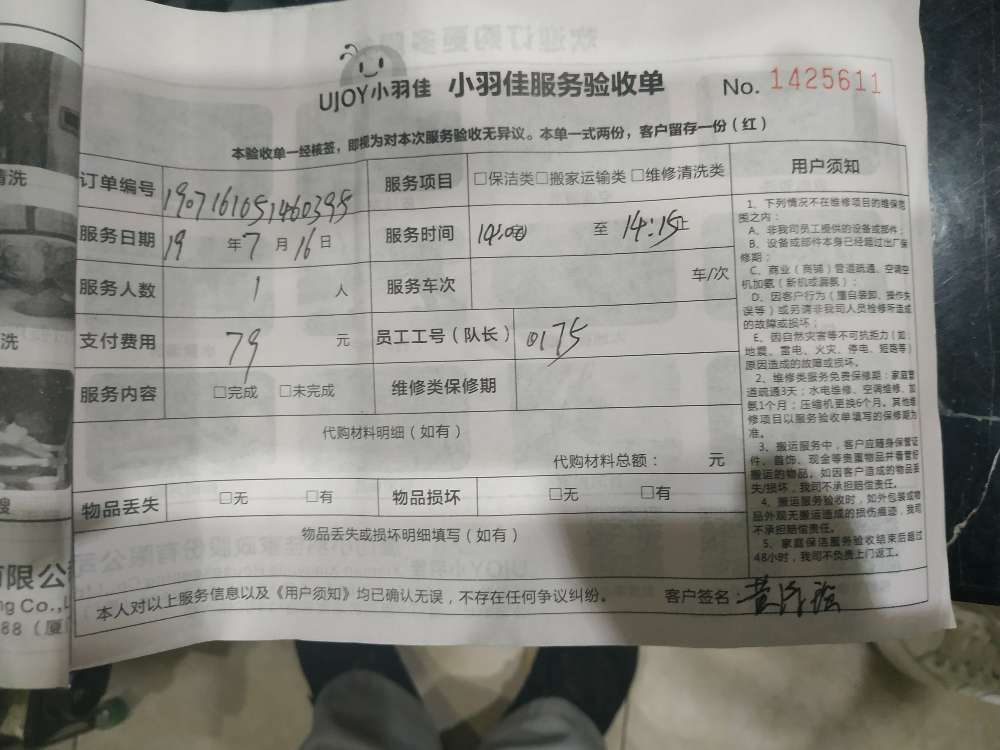 UJOY小羽佳 小羽佳服务验收单 No. 1425611
本验收单一经核签，即视为对本次服务验收无异议。本单一式两份，客户留存一份（红）
订单编号 1907161051460395 服务项目 □保洁类□搬家运输类 □维修清洗类
服务日期 19 年 7 月 16 日 服务时间 14:00 至 14:15止
服务人数 1 人 服务车次 车/次
支付费用 79 元 员工工号（队长） 0175
服务内容 □完成 □未完成 维修类保修期
代购材料明细（如有）
代购材料总额： 元
物品丢失 □无 □有 物品损坏 □无 □有
物品丢失或损坏明细填写（如有）
本人对以上服务信息以及《用户须知》均已确认无误，不存在任何争议纠纷。 客户签名：
用户须知
1、下列情况不在维修项目的维保范
类之内：
A、非我司员工提供的设备或部件；
B、设备或部件本身已经超过出厂保
修期；
C、商业（商铺）管道疏通、空调空
机加氨（新机或漏氨）；
D、因客户行为（擅自装卸、操作失
误等）或另请非我司人员检修所造成
的故障或损坏；
E、因自然灾害等不可抗拒力（如：
地震、雷电、火灾、停电、短路等）
原因造成的故障或损坏。
2、维修类服务免费保修期：家庭管
道疏通3天；水电维修、空调维修、加
氨1个月；压缩机更换6个月。其他维
修项目以服务验收单填写的保修期为
准。
3、搬运服务中，客户应随身保管证
件、首饰、现金等贵重物品并看管好
搬运的物品。如因客户造成的物品丢
失/损坏，我司不承担赔偿责任。
4、搬运服务验收时，如外包装或物
品外观无搬运造成的损伤痕迹，我司
不承担赔偿责任。
5、家庭保洁服务验收结束后超过
48小时，我司不负责上门返工。
清洗
洗
有限公
ng Co.,L
88（厦